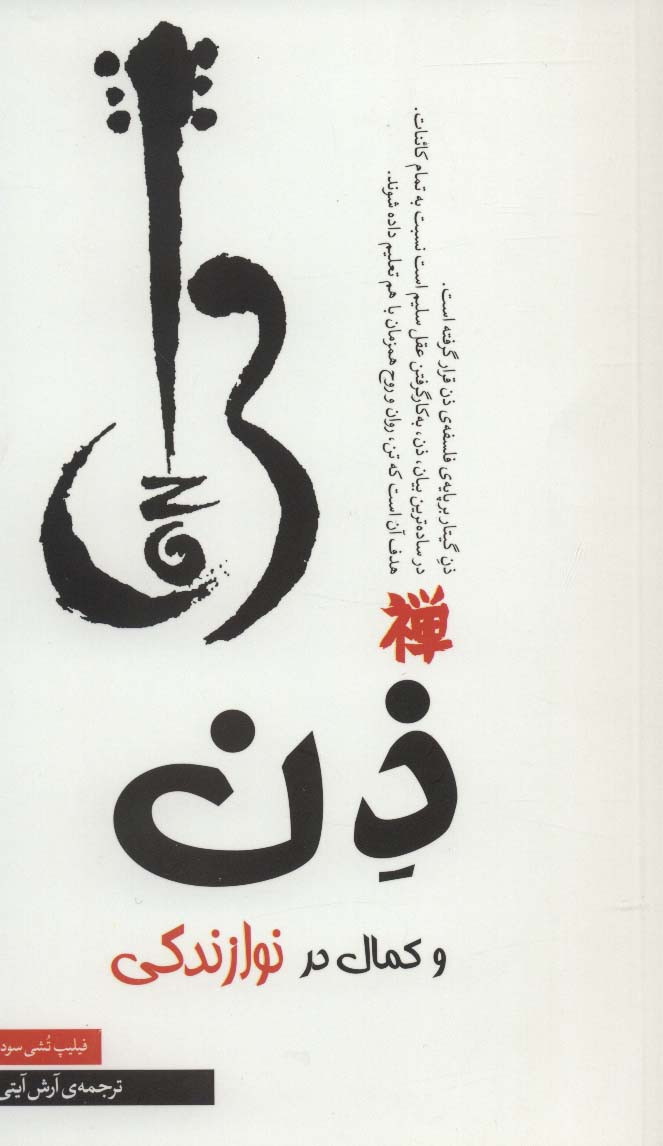 ذنِ گیتار بر پایه‌ی فلسفه‌ی ذن قرار گرفته است.
در ساده‌ترین بیان، ذن، به‌کارگرفتن عقل سلیم است نسبت به تمام کائنات.
هدف آن است که تن، روان و روح همزمان با هم تعلیم داده شوند.
禅
ذِن
و کمال در نوازندگی
فیلیپ تُشی سود
ترجمه‌ی آرش آیتی